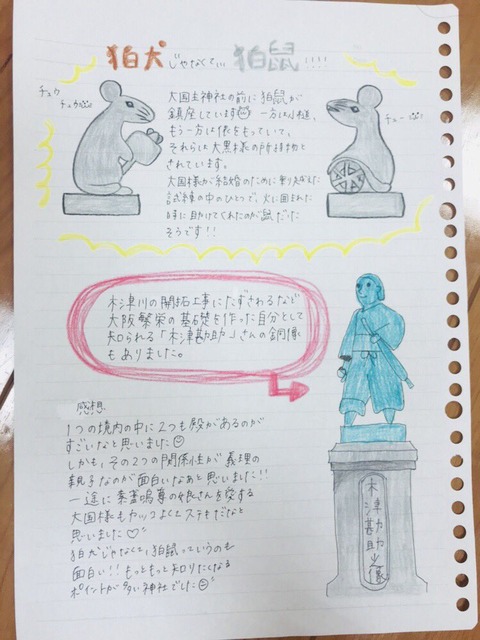 狛犬じゃなくて… 狛鼠!!!!
チュウ
チュウ
大国主神社の前に狛鼠が
鎮座しています 一方は小槌、
もう一方は俵をもっていて、
それらは大黒様の所持物と
されています。
大国様が結婚のために乗り越えた
試練の中のひとつで、火に囲まれた
時に助けてくれたのが鼠だった
そうです!!
チュー
木津川の開拓工事にたずさわるなど
大阪繁栄の基礎を作った自分として
知られる「木津勘助」さんの銅像
もありました。
感想
1つの境内の中に2つも殿があるのが
すごいなと思いました
しかも、その2つの関係性が義理の
親子なのが面白いなあと思いました!!
一途に素盞嗚尊の娘さんを愛する
大国様もカッコよくてステキだなと
思いました♡
狛犬じゃなくて、狛鼠っていうのも
面白い!! もっともっと知りたくなる
ポイントが多い神社でした
木津勘助之像